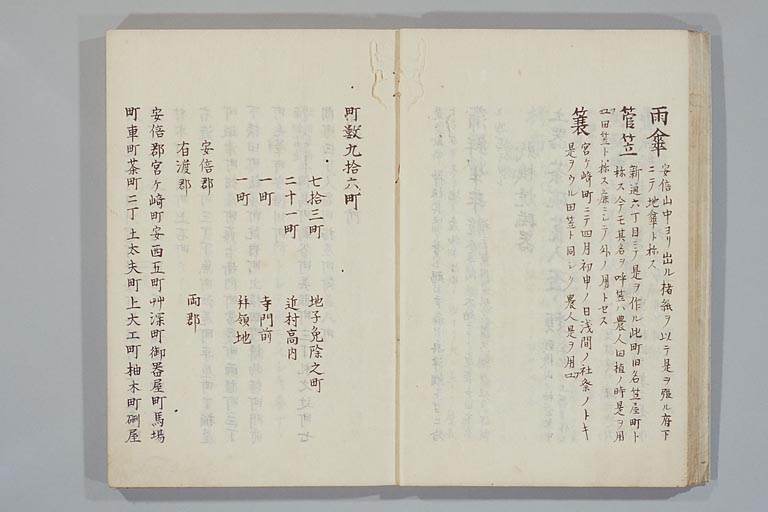 雨傘 安倍山中ヨリ出ル楮紙ヲ以テ是ヲ張ル府下
ニテ地傘ト称ス
菅笠 新通六丁目ニテ是ヲ作ル此町旧名笠屋町ト
称ス今モ其名ヲ呼笠ハ農人田植ノ時是ヲ用
ユ田笠ト称ス麁ニシテ外ノ用トセス
簑 宮ケ崎町ニテ四月初申ノ日浅間ノ社祭ノトキ
是ヲウル田笠ト同シク農人是ヲ用ユ
町数九拾六町
七拾三町 地子免除之町
二十一町 近村高内
一町 寺門前
一町 拝領地
安倍郡
有渡郡 両郡
安倍郡宮ケ崎町安西五町艸深町御器屋町馬場
町車町茶町二丁土太夫町上大工町柚木町研屋